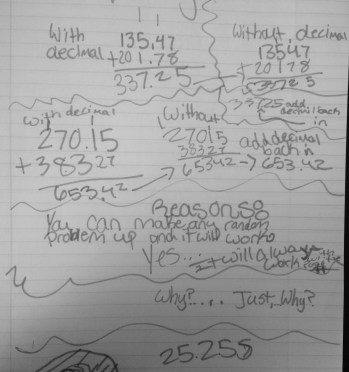 With
decimal
135.47
+201.78
337.25
Without decimal
13547
+20178
33725
337.25 add
decimal back
in
With decimal
270.15
+383.27
653.42
Without
27015
38327
65342 → 653.42
add decimal
back in
Reasons
You can make any random
problem up and it will work
Yes... it will always
work
Why?.... Just, Why?
25.255